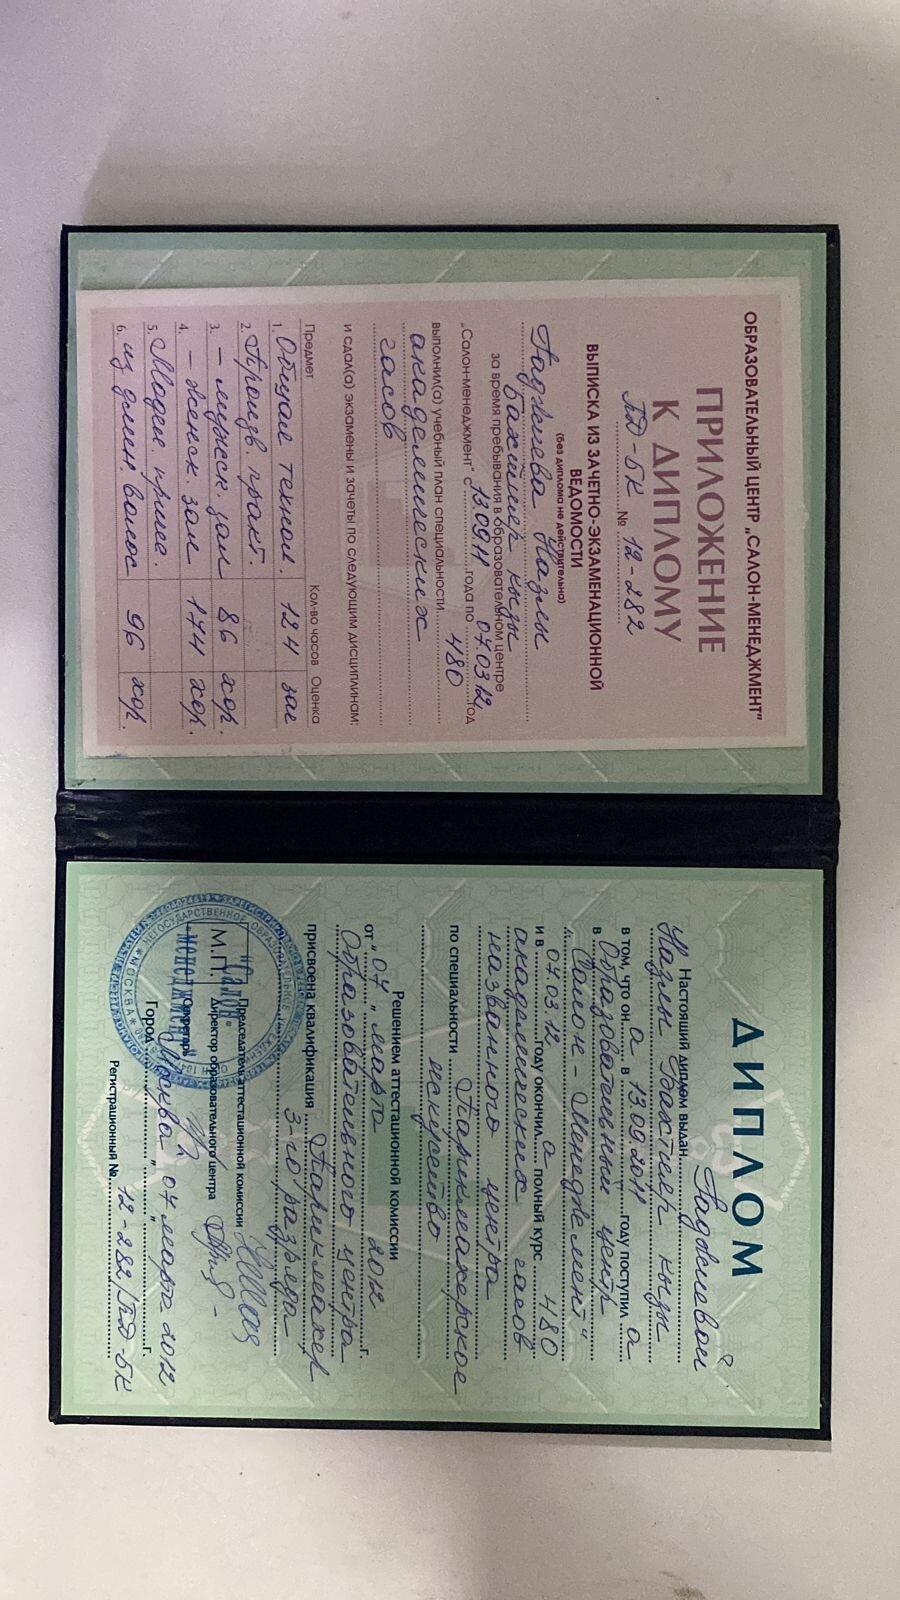 ОБРАЗОВАТЕЛЬНЫЙ ЦЕНТР „САЛОН-МЕНЕДЖМЕНТ"
ПРИЛОЖЕНИЕ
К ДИПЛОМУ
ПД-5К № 12-282
ВЫПИСКА ИЗ ЗАЧЕТНО-ЭКЗАМЕНАЦИОННОЙ
ВЕДОМОСТИ
(без диплома не действительно)
Гаджиева Назлы
Бахтияр кызы
за время пребывания в образовательном центре
„Салон-менеджмент" с 130911 года по 070312 год
выполнил(а) учебный план специальности 480
академических
часов
и сдал(а) экзамены и зачеты по следующим дисциплинам:
Предмет Кол-во часов Оценка
1. Общая технол 124 зач
2. Произв. практ.
3. – мужск. зал 86 хор.
4. – женск. зал 174 хор.
5. Модел. причес.
6. из длин. волос 96 хор.
ДИПЛОМ
Настоящий диплом выдан Гаджиевой
Назлы Бахтияр кызы
в том, что он а в 13.09.2011 году поступил а
в Образовательный центр
„Салон-Менеджмент"
и в 07.03.12 году окончил а полный курс 480
академических часов
названного центра
по специальности Парикмахерское
искусство
Решением аттестационной комиссии
от „07" марта 2012 г.
Образовательного центра
присвоена квалификация Парикмахер
3-го разряда
Председатель аттестационной комиссии
Директор образовательного центра
Секретарь
М.П.
Город Москва „07" марта 2012 г.
Регистрационный № 12-282/ПД-5К
НЕГОСУДАРСТВЕННОЕ ОБРАЗОВАТЕЛЬНОЕ
"Салон-
МОСКВА